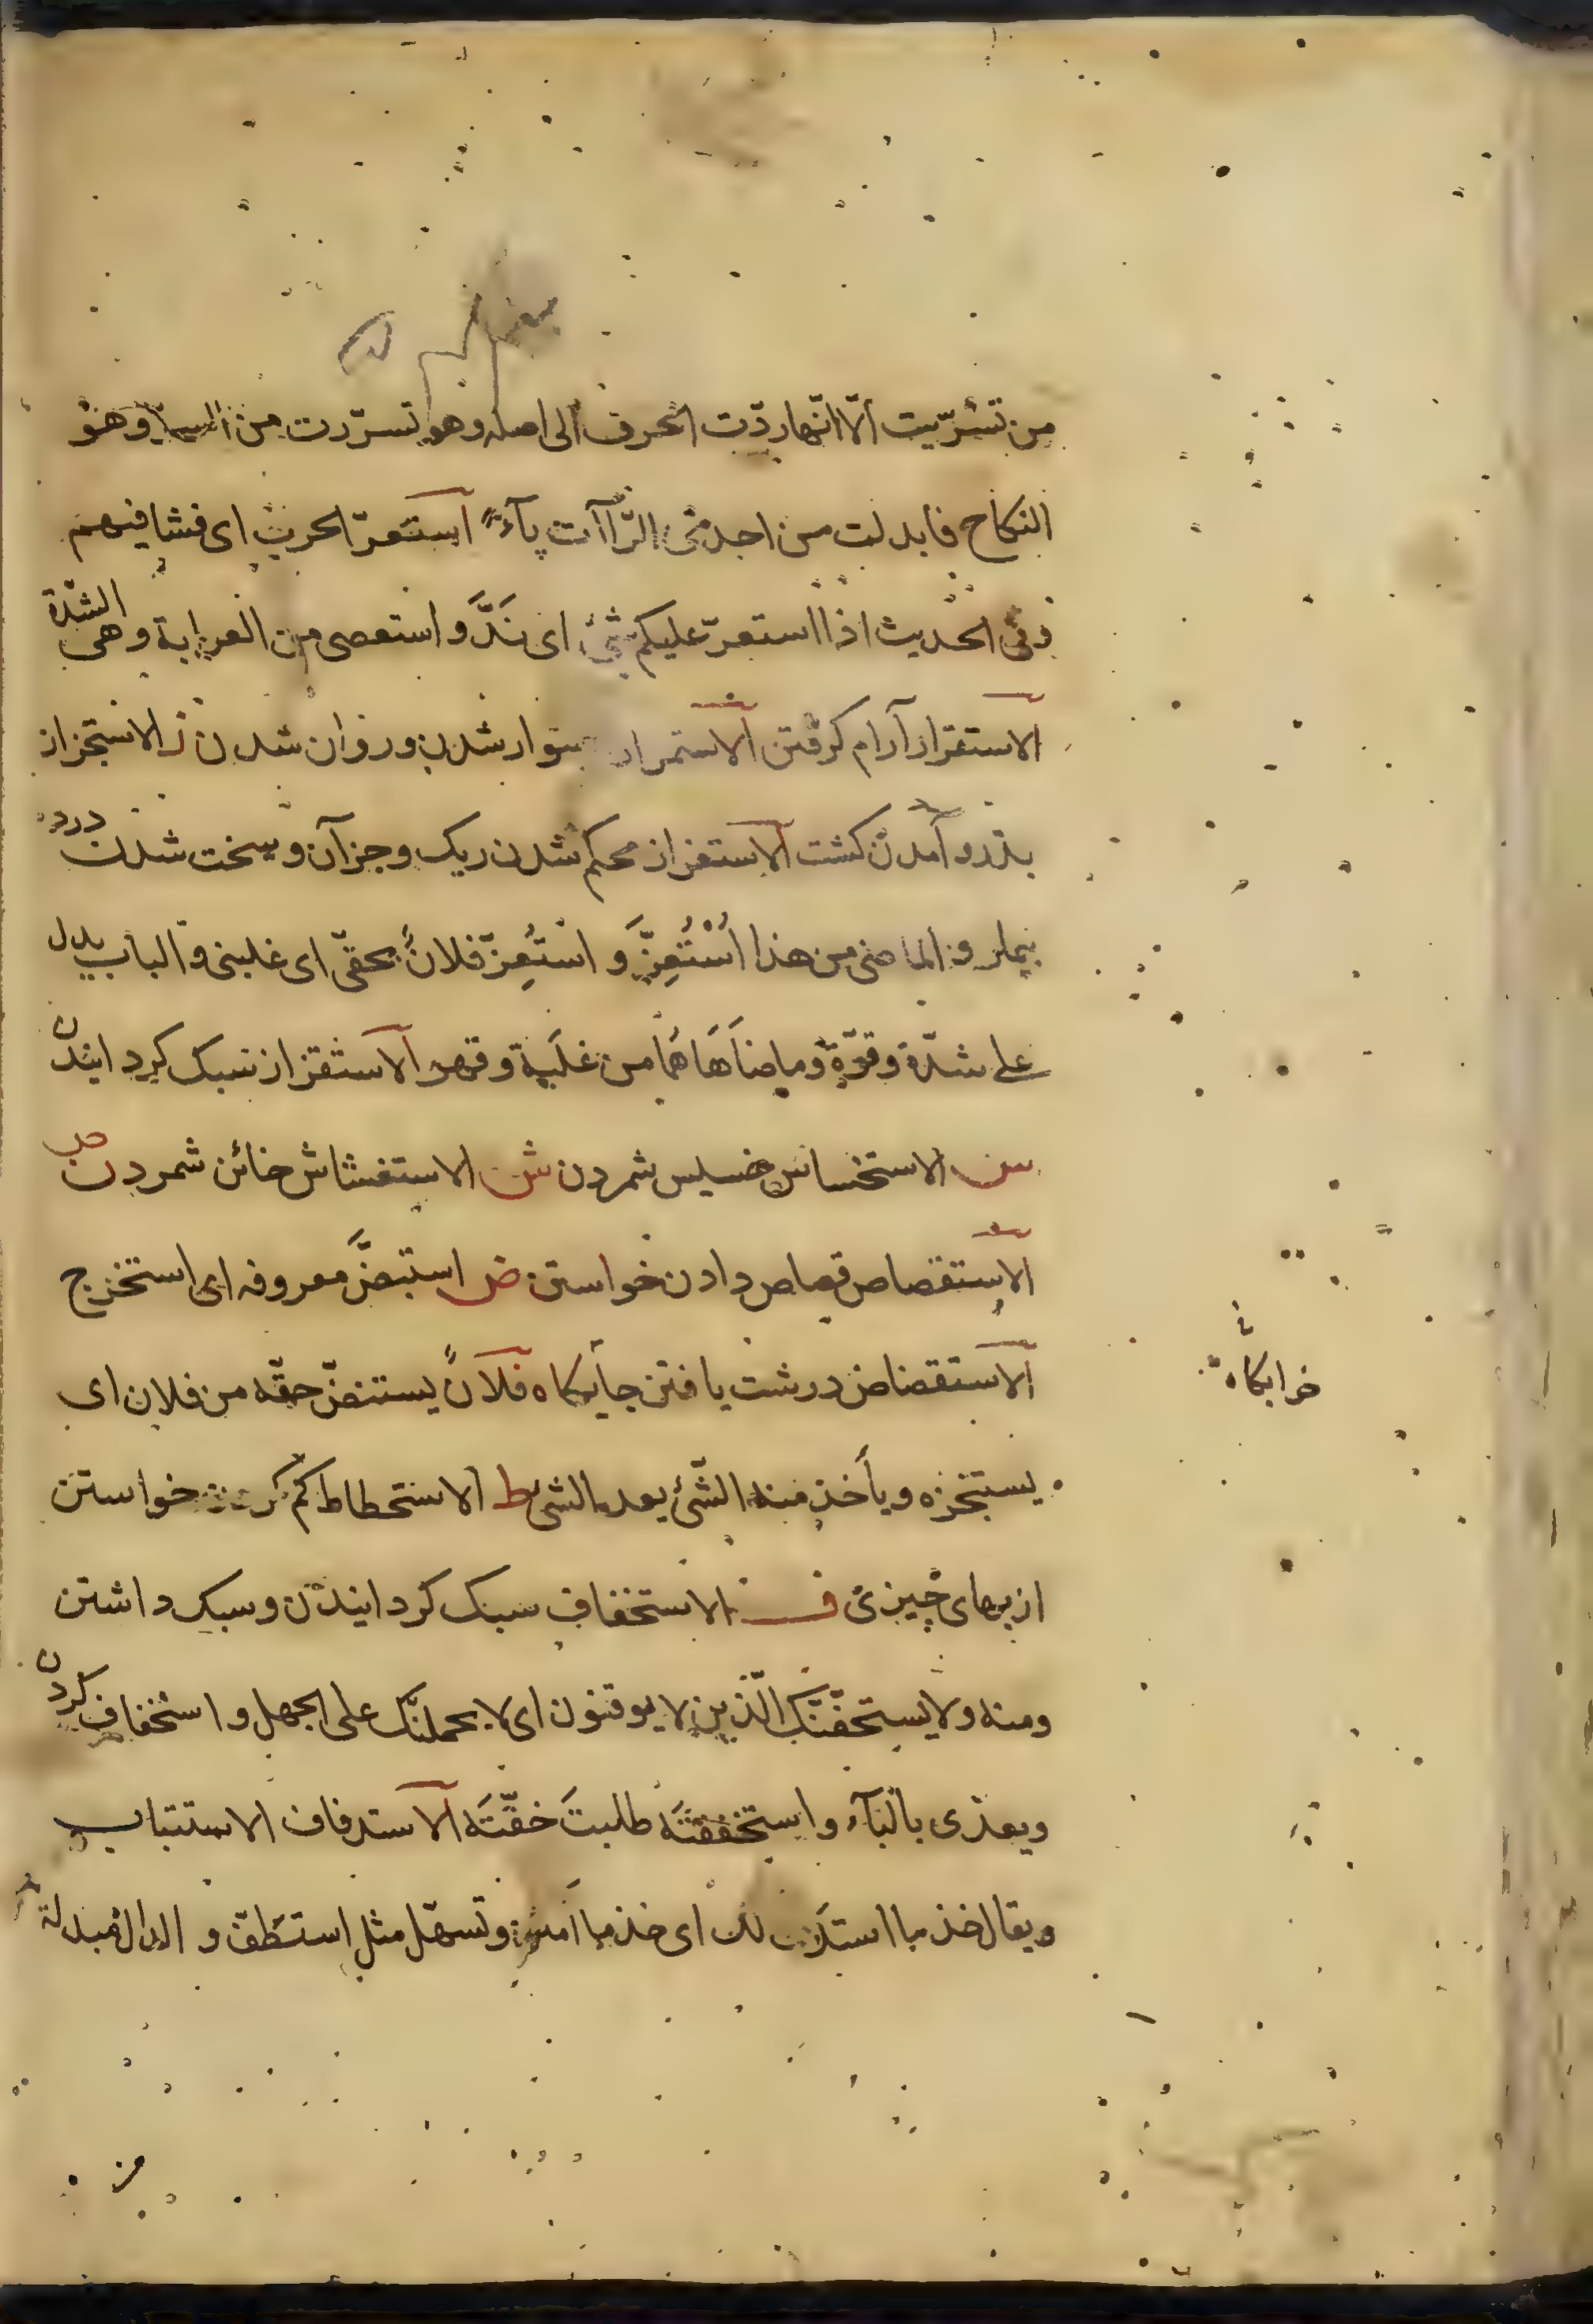 من تسرّيت الّا انّها ردّت الحرف الی اصله وهو تسرّرت من السرّ وهو
النكاح فابدلت من احدی الرّاآت يآءً استعرّ الحرب ای فشا فيهم
وفی الحديث اذا استعرّ عليكم شئ ای نَدَّ و استعصی من العرارة وهی الشدّة
الاستقرار آرام كرفتن الاستمرار استوار شدن و روان شدن ز الاستجزاز
بدرو آمدن كشت الاستعزاز محكم شدن ريک وجز آن و سخت شدن درد
بيمار و الماضی من هذا اُسْتُعِزَّ و استُعِزّ فلانٌ بحقّی ای غلبنی و الباب يدل
علی شدّة وقوّة وما ضاهَاهُما من غلَبة وقهر الاستفزاز سبک كردانيدن
س الاستخساس خسيس شمردن ش الاستغشاش خائن شمردن ص
الاستقصاص قصاص دادن خواستن ض استبضَّ معروفه ای استخرج
الاستقضاض درشت يافتن جايكاه فلانٌ يستنضّ حقّه من فلان ای
يستنجزه و يأخذ منه الشّئ بعد الشئ ط الاستحطاط كم كردن خواستن
از بهای چيزی ف الاستخفاف سبک كردانيدن و سبک داشتن
ومنه ولا يستخفّنّک الّذين لا يوقنون ای لا يحملنّک علی الجهل و استخفاف كردن
ويعدّی بالبآء و استخففتَه طلبتَ خفّتَه الاستدفاف الاستتباب
ويقال خذ ما استدفّ لک ای خذ ما امكن وتسهّل مثل استطفّ و الدال مبدلة
خوابكاه